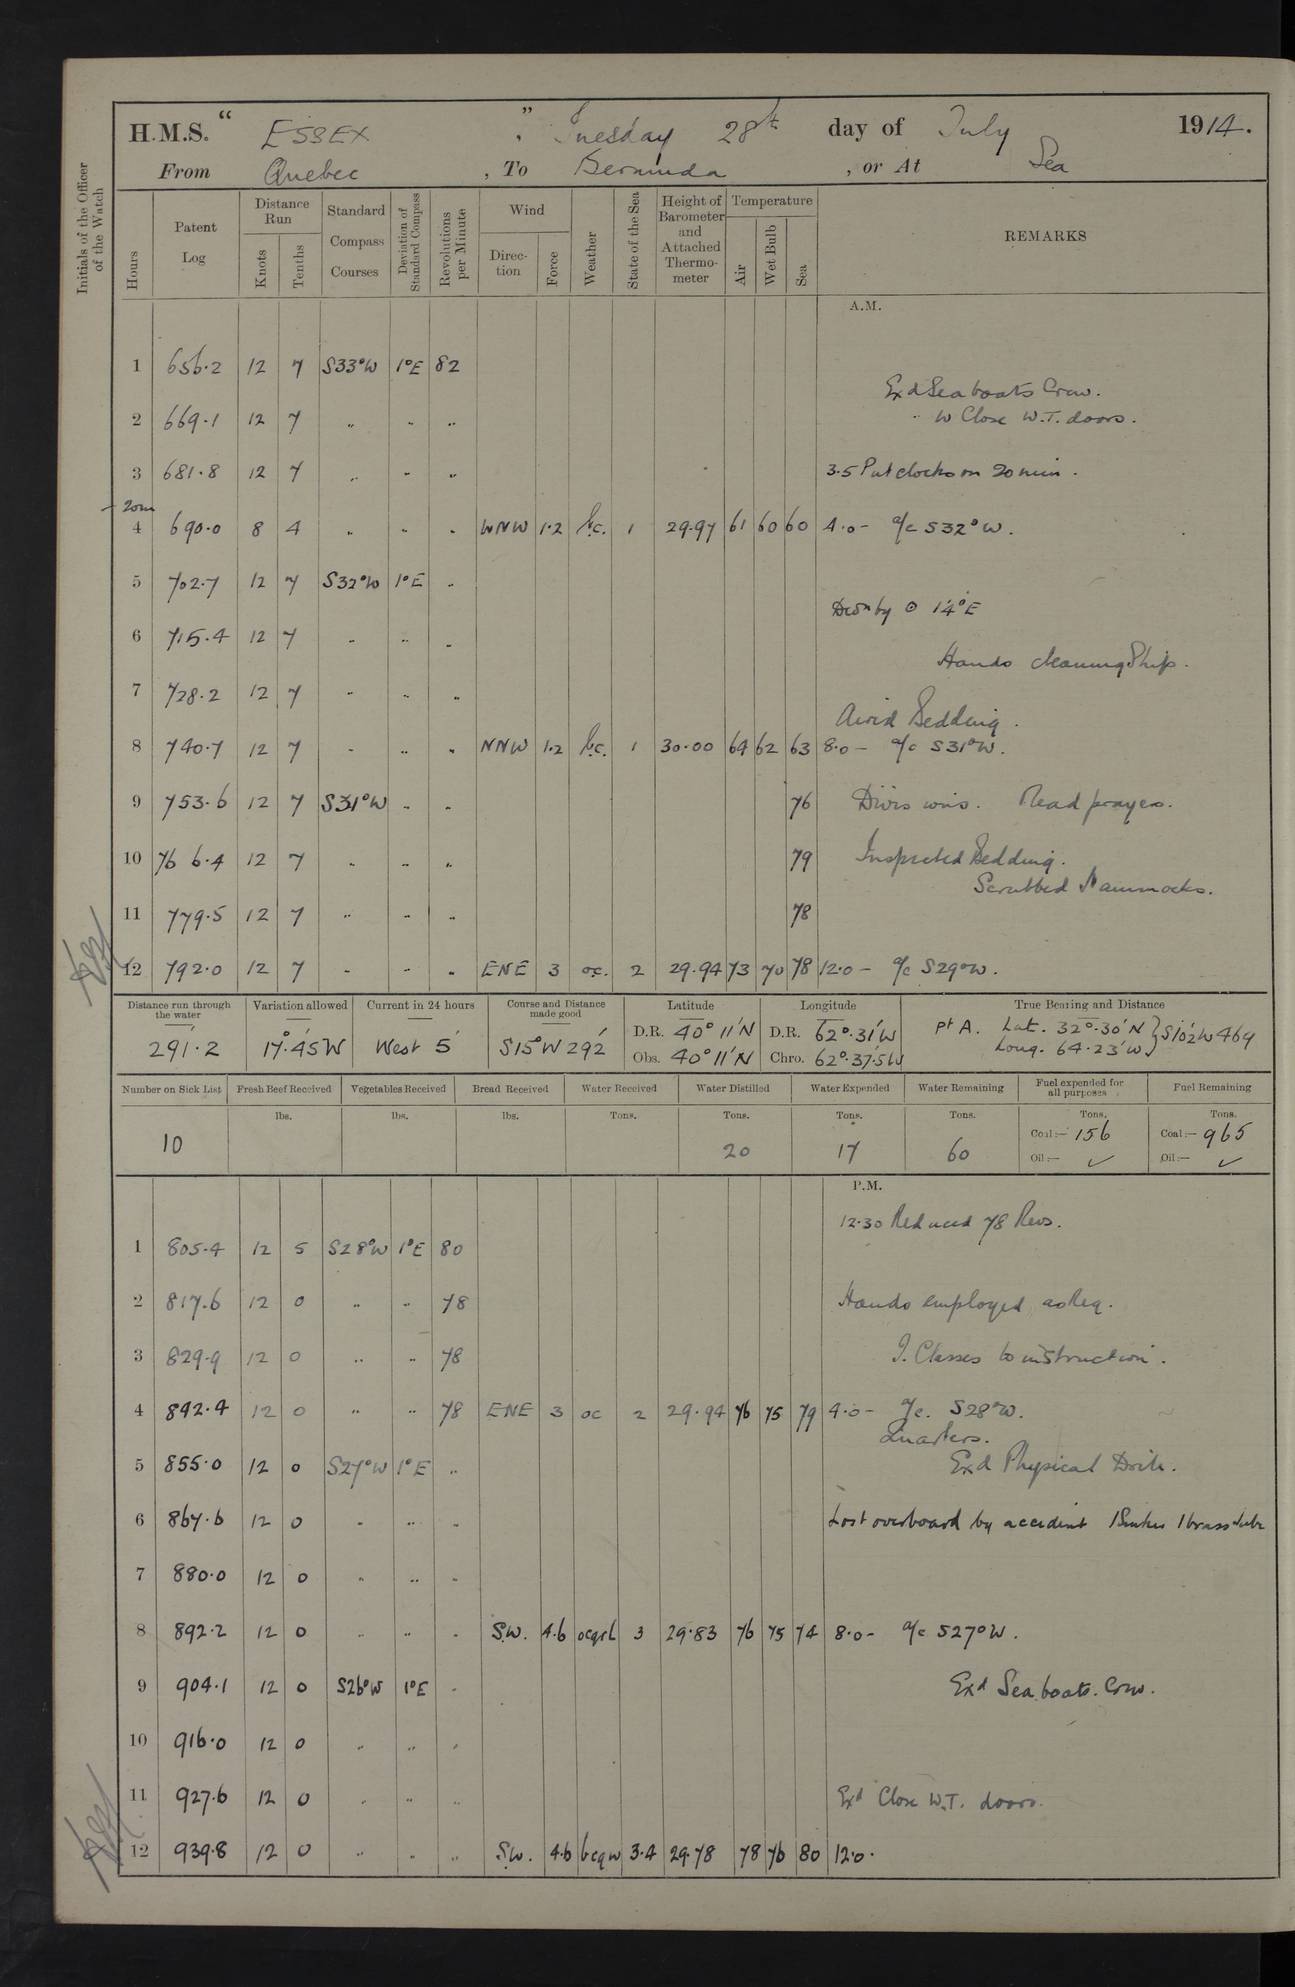 H.M.S. " ESSEX ", Tuesday 28th day of July 1914.
From Quebec, To Bermuda, or At Sea
Initials of the Officer of the Watch
Hours Patent Log Distance Run Knots Tenths Standard Compass Courses Deviation of Standard Compass Revolutions per Minute Wind Direction Force Weather State of the Sea Height of Barometer and Attached Thermometer Temperature Air Wet Bulb Sea REMARKS
A.M.
1 656.2 12 7 S33°W 1°E 82
Exd Seaboats Crew.
2 669.1 12 7 " " " " Close W.T. doors.
3 681.8 12 7 " " " 3.5 Put clocks on 20 min.
20m
4 690.0 8 4 " " " WNW 1.2 b.c. 1 29.97 61 60 60 4.0 - a/c S32°W.
5 702.7 12 7 S32°W 1°E "
Devn by ☉ 1.4°E
6 715.4 12 7 " " "
Hands cleaning Ship.
7 728.2 12 7 " " "
Aired Bedding.
8 740.7 12 7 " " " NNW 1.2 b.c. 1 30.00 64 62 63 8.0 - a/c S31°W.
9 753.6 12 7 S31°W " " 76 Divisions. Read prayers.
10 766.4 12 7 " " " 79 Inspected Bedding.
Scrubbed Hammocks.
11 779.5 12 7 " " " 78
12 792.0 12 7 " " " ENE 3 o.c. 2 29.94 73 70 78 12.0 - a/c S29°W.
Distance run through the water Variation allowed Current in 24 hours Course and Distance made good Latitude Longitude True Bearing and Distance
291.2 17°.45'W West 5' S15°W 292' D.R. 40° 11'N D.R. 62°.31'W Pt A. Lat. 32°.30'N } S10½°W 469
Obs. 40° 11'N Chro. 62°.37.5W Long. 64.23'W
Number on Sick List Fresh Beef Received Vegetables Received Bread Received Water Received Water Distilled Water Expended Water Remaining Fuel expended for all purposes Fuel Remaining
lbs. lbs. lbs. Tons. Tons. Tons. Tons. Tons. Tons.
10 20 17 60 Coal:— 156 Coal:— 965
Oil:— ✓ Oil:— ✓
P.M.
12.30 Reduced 78 Revs.
1 805.4 12 5 S28°W 1°E 80
2 817.6 12 0 " " 78 Hands employed as Req.
3 829.9 12 0 " " 78 I. Classes to instruction.
4 842.4 12 0 " " 78 ENE 3 oc 2 29.94 76 75 79 4.0 - a/c. S28°W.
Quarters.
5 855.0 12 0 S27°W 1°E " Exd Physical Drill.
6 867.6 12 0 " " " Lost overboard by accident 1 Sinker 1 brass tube
7 880.0 12 0 " " "
8 892.2 12 0 " " " S.W. 4.6 ocqrl 3 29.83 76 75 74 8.0 - a/c S27°W.
9 904.1 12 0 S26°W 1°E " Exd Sea boats. Crew.
10 916.0 12 0 " " "
11 927.6 12 0 " " " Exd Close W.T. doors.
12 939.8 12 0 " " " S.W. 4.6 bcqw 3.4 29.78 78 76 80 12.0.